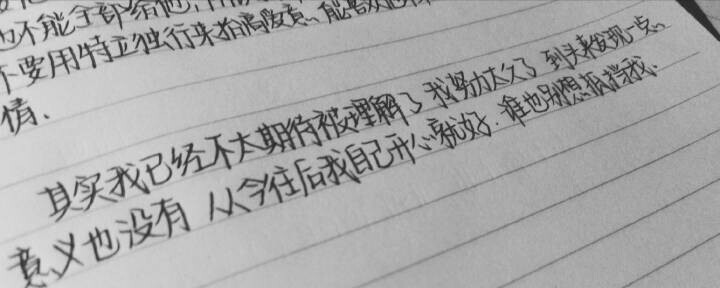 也不能全部给他
不要用特立独行来抬高
情、
其实我已经不太期待被理解了 我努力太久了 到头来发现一点
意义也没有 从今往后我自己开心就好. 谁也别想抵挡我.